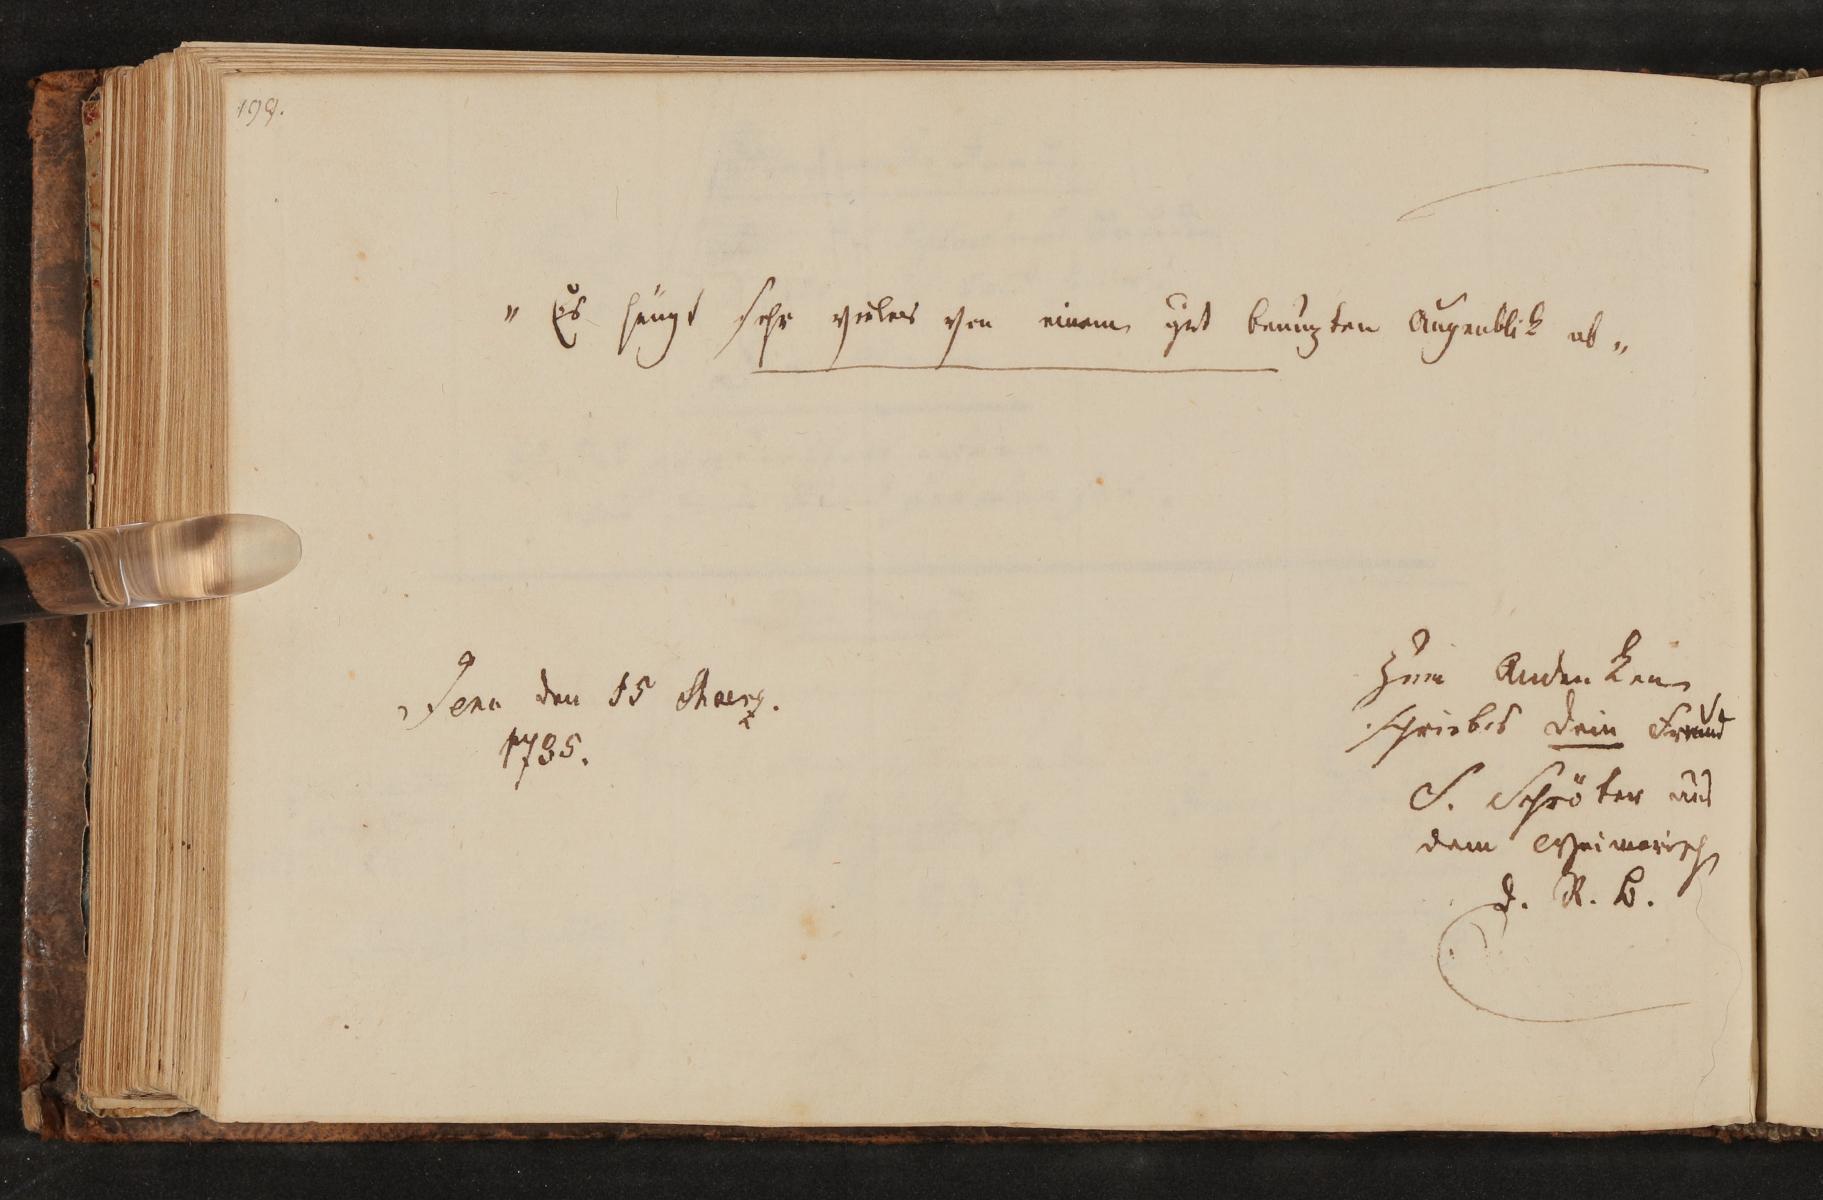 198.
„ Es hängt sehr vieles von einem gut benuzten Augenblik ab „
Jena den 15 Maerz.
1795.
Zum Andenken
schriebs dein Freund
S. Schröter aus
dem Weimarisch
d. R. B.